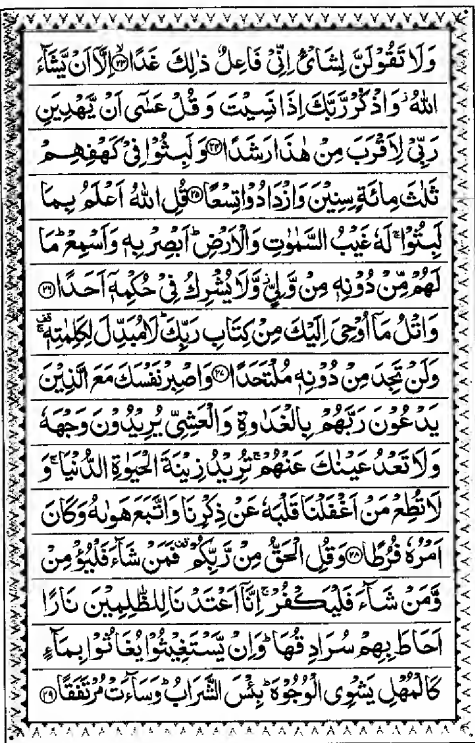 وَلَا تَقُوْلَنَّ لِشَایْءٍ اِنِّیْ فَاعِلٌ ذٰلِكَ غَدًا ۙ‏﴿۲۳﴾ اِلَّاۤ اَنْ یَّشَآءَ
اللّٰهُ ؗ وَاذْكُرْ رَّبَّكَ اِذَا نَسِیْتَ وَ قُلْ عَسٰۤی اَنْ یَّهْدِیَنِ
رَبِّیْ لِاَقْرَبَ مِنْ هٰذَا رَشَدًا ﴿۲۴﴾ وَ لَبِثُوْا فِیْ كَهْفِهِمْ
ثَلٰثَ مِائَةٍ سِنِیْنَ وَازْدَادُوْا تِسْعًا ﴿۲۵﴾ قُلِ اللّٰهُ اَعْلَمُ بِمَا
لَبِثُوْا ۚ لَهٗ غَیْبُ السَّمٰوٰتِ وَالْاَرْضِ ؕ اَبْصِرْ بِهٖ وَاَسْمِعْ ؕ مَا
لَهُمْ مِّنْ دُوْنِهٖ مِنْ وَّلِیٍّ ؗ وَّلَا یُشْرِكُ فِیْ حُكْمِهٖۤ اَحَدًا ﴿۲۶﴾
وَاتْلُ مَاۤ اُوْحِیَ اِلَیْكَ مِنْ كِتَابِ رَبِّكَ ؕ لَا مُبَدِّلَ لِكَلِمٰتِهٖ ۚ
وَلَنْ تَجِدَ مِنْ دُوْنِهٖ مُلْتَحَدًا ﴿۲۷﴾ وَاصْبِرْ نَفْسَكَ مَعَ الَّذِیْنَ
یَدْعُوْنَ رَبَّهُمْ بِالْغَدٰوةِ وَالْعَشِیِّ یُرِیْدُوْنَ وَجْهَهٗ
وَلَا تَعْدُ عَیْنٰكَ عَنْهُمْ ۚ تُرِیْدُ زِیْنَةَ الْحَیٰوةِ الدُّنْیَا ۚ وَ
لَا تُطِعْ مَنْ اَغْفَلْنَا قَلْبَهٗ عَنْ ذِكْرِنَا وَاتَّبَعَ هَوٰىهُ وَكَانَ
اَمْرُهٗ فُرُطًا ﴿۲۸﴾ وَقُلِ الْحَقُّ مِنْ رَّبِّكُمْ ۫ فَمَنْ شَآءَ فَلْیُؤْمِنْ
وَّمَنْ شَآءَ فَلْیَكْفُرْ ۙ اِنَّاۤ اَعْتَدْنَا لِلظّٰلِمِیْنَ نَارًا
اَحَاطَ بِهِمْ سُرَادِقُهَا ؕ وَاِنْ یَّسْتَغِیْثُوْا یُغَاثُوْا بِمَآءٍ
كَالْمُهْلِ یَشْوِی الْوُجُوْهَ ؕ بِئْسَ الشَّرَابُ ؕ وَسَآءَتْ مُرْتَفَقًا ﴿۲۹﴾